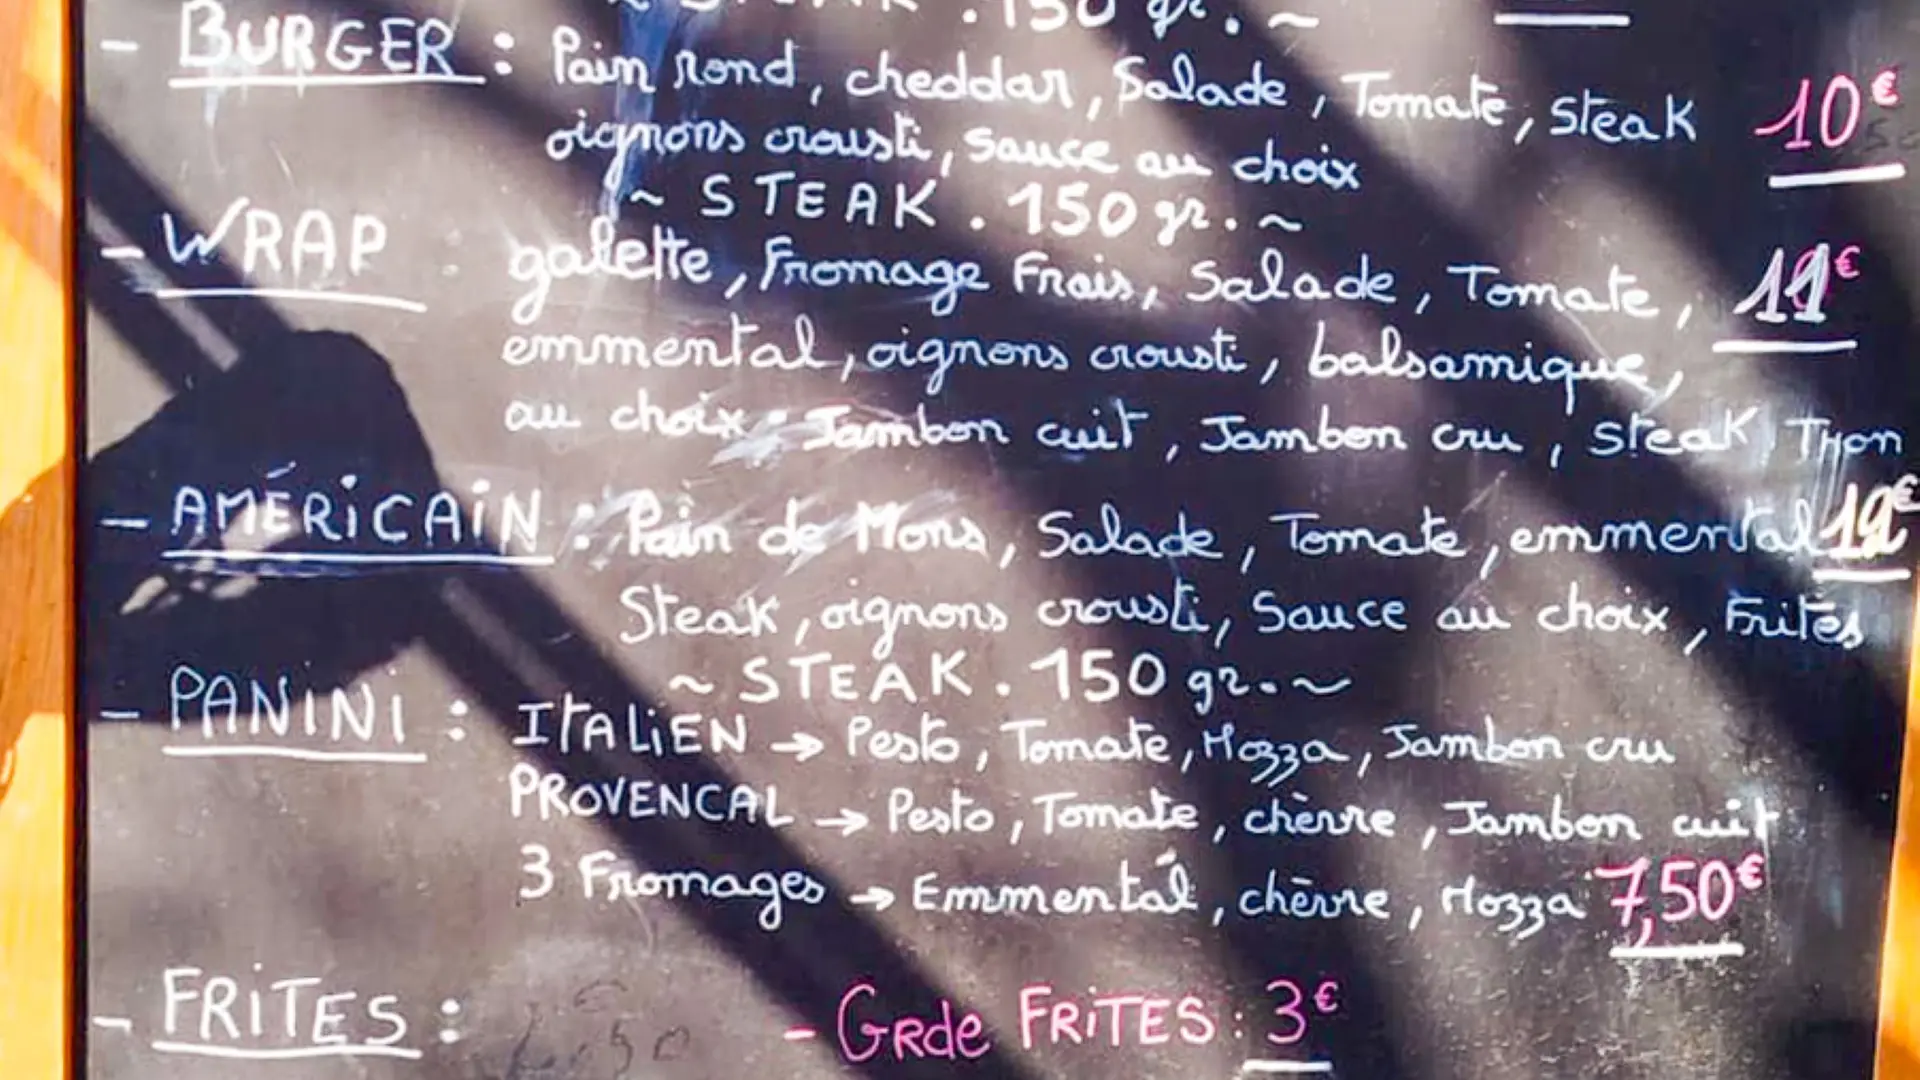 ~ STEAK . 150 gr. ~
- BURGER : Pain rond, cheddar, Salade, Tomate, Steak 10€
oignons crousti, Sauce au choix
~ STEAK . 150 gr. ~
- WRAP : galette, Fromage Frais, Salade, Tomate, 11€
emmental, oignons crousti, balsamique,
au choix : Jambon cuit, Jambon cru, Steak, Thon
- AMÉRICAIN : Pain de Mons, Salade, Tomate, emmental
Steak, oignons crousti, Sauce au choix, Frites
~ STEAK . 150 gr. ~
- PANINI : ITALIEN → Pesto, Tomate, Mozza, Jambon cru
PROVENCAL → Pesto, Tomate, chèvre, Jambon cuit
3 Fromages → Emmental, chèvre, Mozza 7,50€
- FRITES : - GRde FRITES : 3€